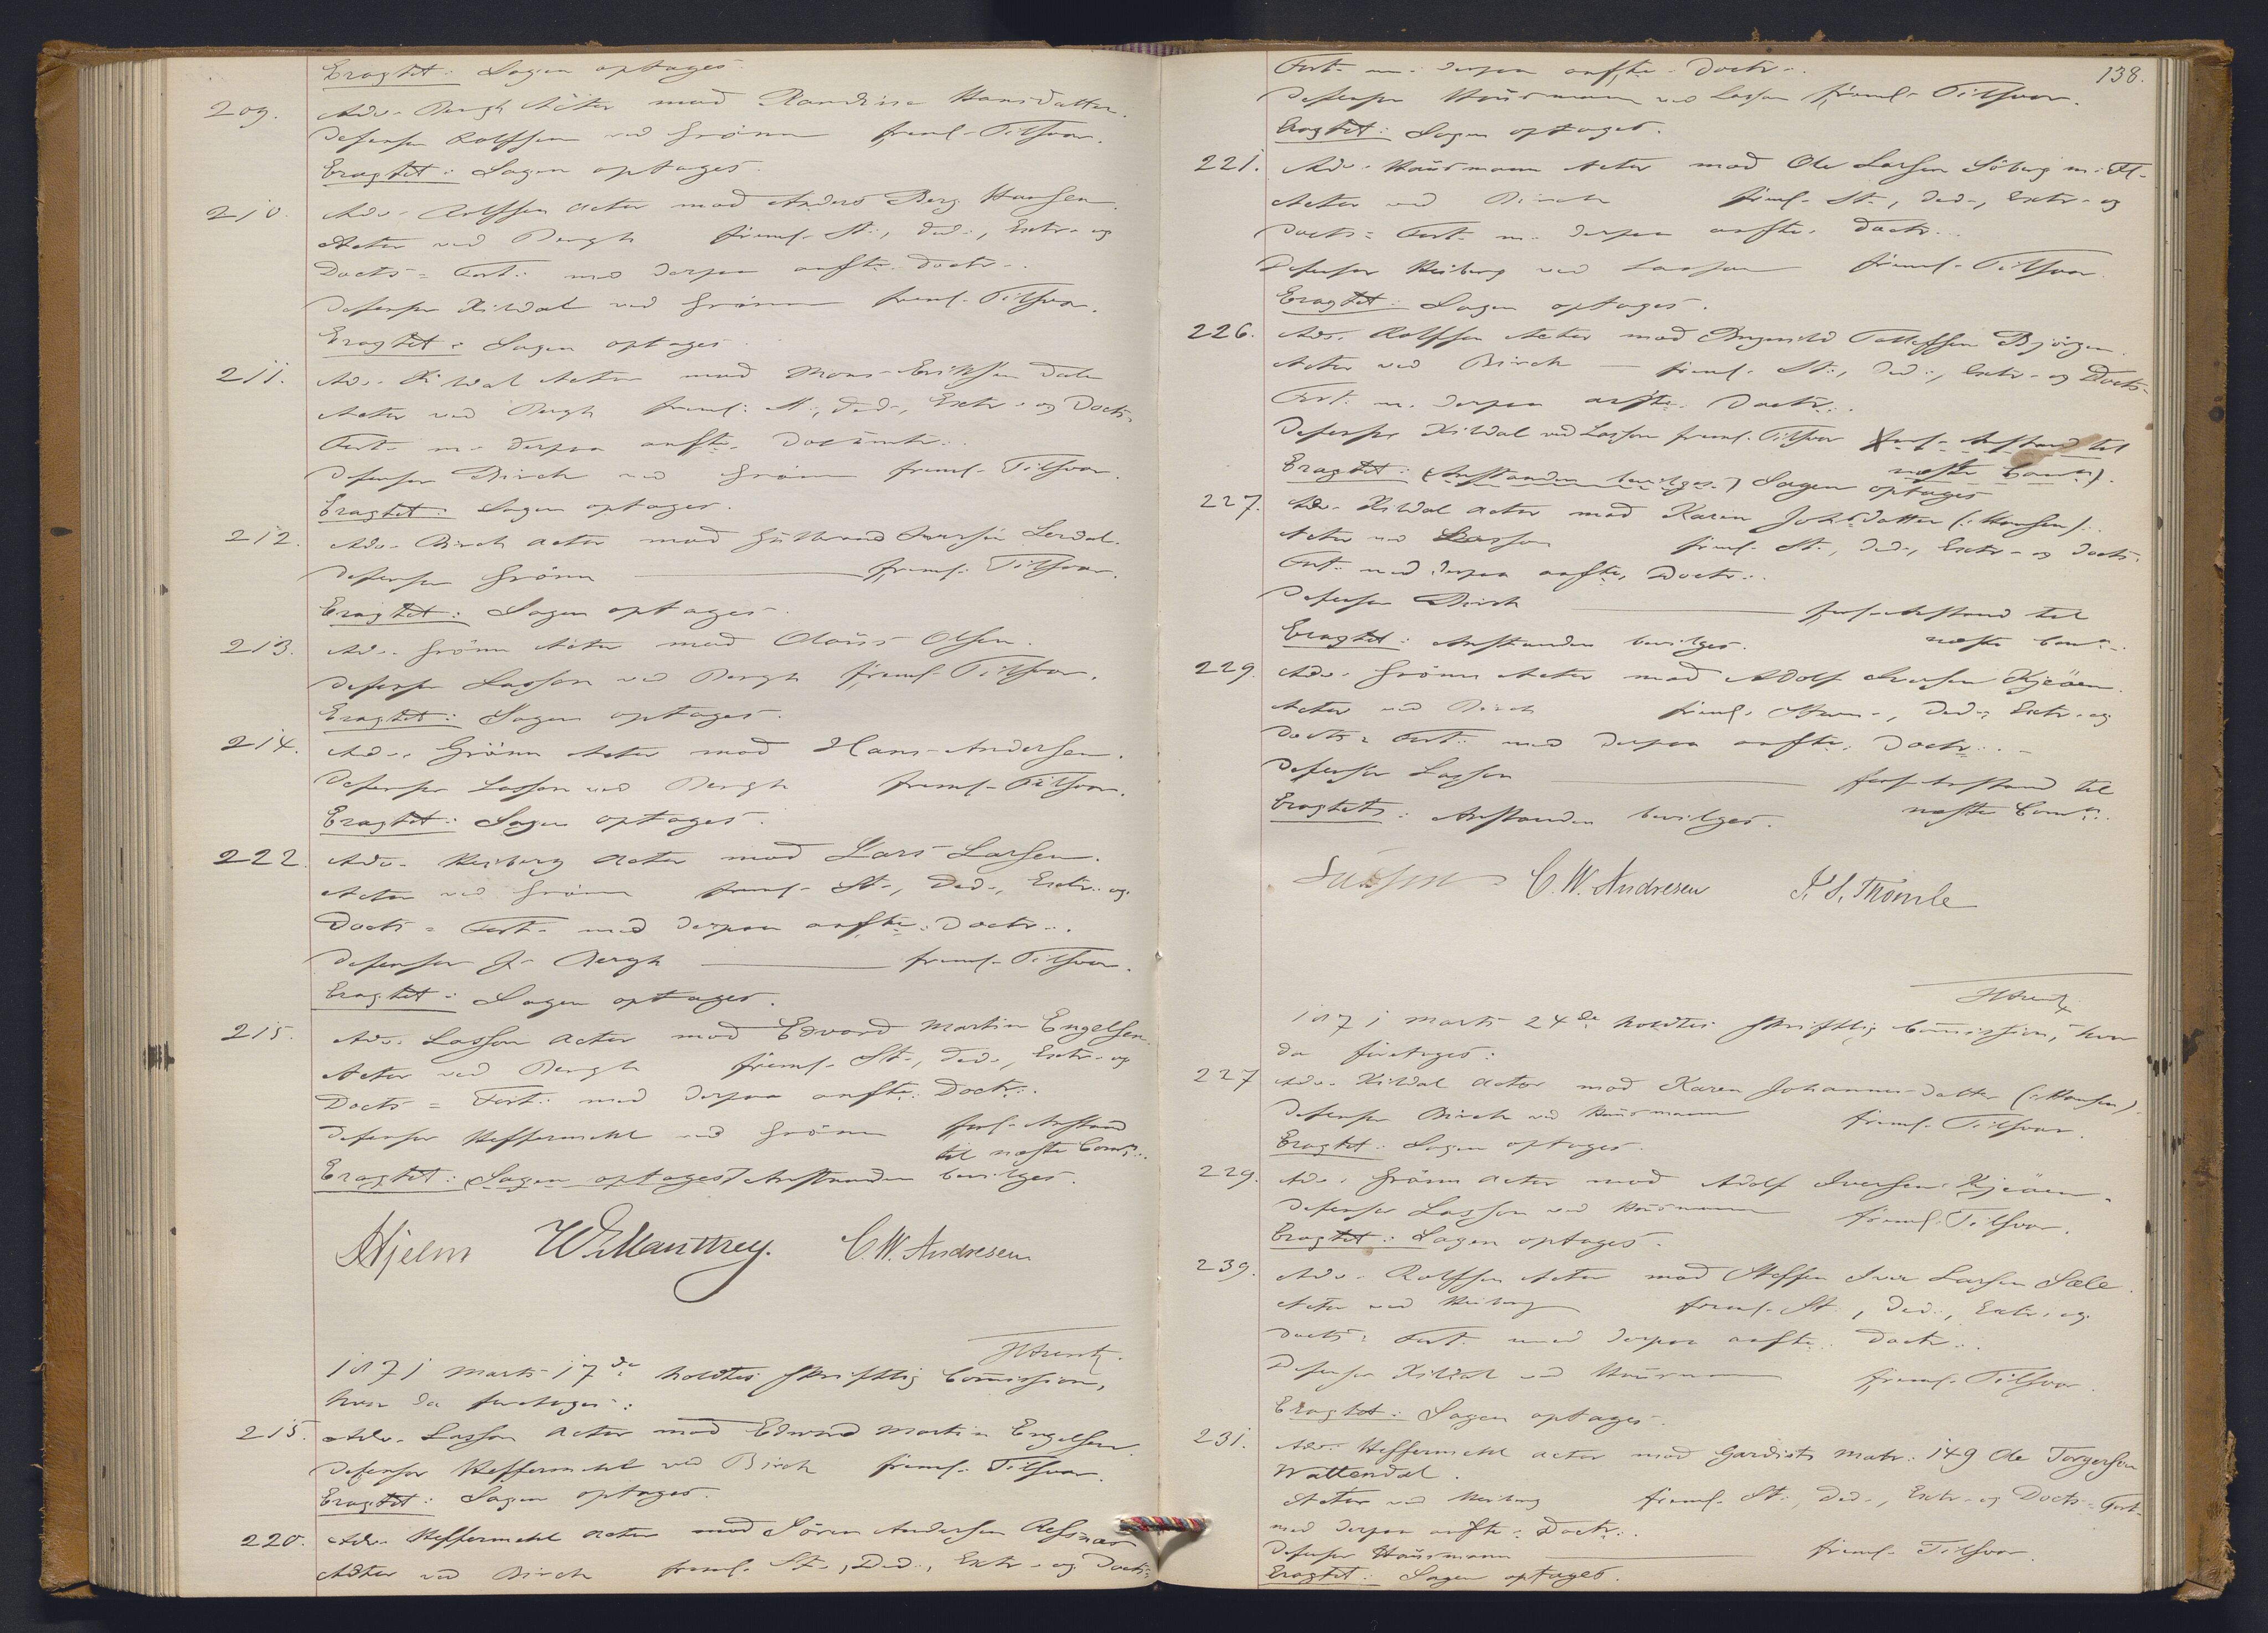 Eragtet: Sagen optages.
209. Adv. Bergh Actor mod Randine Hansdatter.
Defensor Rolfsen ved Grönn freml. Tilsvar.
Eragtet: Sagen optages.
210. Adv. Rolfsen Actor mod Anders Berg Hansen.
Actor ved Bergh freml. St., Ded., Extr. og
Docts = Fort. med derpaa anfte. Doctr.
Defensor Kildal ved Grönn freml. Tilsvar.
Eragtet: Sagen optages.
211. Adv. Kildal Actor mod Mons Eriksen Dale
Actor ved Bergh freml. St., Ded., Extr. og Docts =
Fort. m. derpaa anfte. Documtr.
Defensor Birch ved Grönn freml. Tilsvar.
Eragtet: Sagen optages.
212. Adv. Birch Actor mod Gulbrand Iversen Lerdal.
Defensor Grönn freml. Tilsvar.
Eragtet: Sagen optages.
213. Adv. Grönn Actor mod Olaus Olsen.
Defensor Lasson ved Bergh freml. Tilsvar.
Eragtet: Sagen optages.
214. Adv. Grönn Actor mod Hans Andersen.
Defensor Lasson ved Bergh freml. Tilsvar.
Eragtet: Sagen optages.
222. Adv. Heiberg Actor mod Lars Larsen.
Actor ved Grönn freml. St., Ded., Extr. og
Docts = Fort. med derpaa anfte. Doctr.
Defensor J. Bergh freml. Tilsvar.
Eragtet: Sagen optages.
215. Adv. Lasson Actor mod Edvard Martin Engelsen.
Actor ved Bergh freml. St., Ded., Extr. og
Docts = Fort. med derpaa anfte. Doctr.
Defensor Heffermehl ved Grönn forl. Anstand
til næste Comn.
Eragtet: (Sagen optages) Anstanden bevilges.
Hjelm W. Manthey. C. W. Andresen
HArentz.
1871 Marts 17de holdtes skriftlig Commission,
hvor da foretoges:
215. Adv. Lasson Actor mod Edvard Martin Engelsen.
Defensor Heffermehl ved Birch freml. Tilsvar.
Eragtet: Sagen optages.
220. Adv. Heffermehl Actor mod Sören Andersen Refsnæs
Actor ved Birch freml. St., Ded., Extr. og Docts =
138.
Fort. m. derpaa anfte. Doctr.
Defensor Hausmann ved Lasson freml. Tilsvar.
Eragtet: Sagen optages.
221. Adv. Hausmann Actor mod Ole Larsen Söberg m. Fl.
Actor ved Birch freml. St., Ded., Extr. og
Docts = Fort. m. derpaa anfte. Doctr.
Defensor Heiberg ved Lasson freml. Tilsvar.
Eragtet: Sagen optages.
226. Adv. Rolfsen Actor mod Tollefsen Bjørgen.
Actor ved Birch — freml. St., Ded., Extr. og Docts =
Fort. m. derpaa anfte. Doctr.
Defensor Kildal ved Lasson freml. Tilsvar forl. Anstand til
næste Comn).
Eragtet: (Anstanden bevilges.) Sagen optages
227. Adv. Kildal Actor mod Karen Johsdatter (: Hansen).
Actor ved Lasson freml. St., Ded., Extr. og Docts.
Fort. med derpaa anfte. Doctr.
Defensor Birch forl. Anstand til
næste Comn.
Eragtet: Anstanden bevilges.
229. Adv. Grönn Actor mod Adolf Iversen Kjeöen.
Actor ved Birch freml. Stevn., Ded., Extr. og
Docts = Fort. med derpaa anfte. Doctr.
Defensor Lasson forl. Anstand til
næste Comn.
Eragtet: Anstanden bevilges.
C. W. Andresen I. S. Thomle
HArentz
1871 Marts 24de holdtes skriftlig Commission, hvor
da foretoges:
227 Adv. Kildal Actor mod Karen Johannesdatter (: Hansen).
Defensor Birch ved Hausmann freml. Tilsvar.
Eragtet: Sagen optages.
229. Adv. Grönn Actor mod Adolf Iversen Kjeöen.
Defensor Lasson ved Hausmann freml. Tilsvar.
Eragtet: Sagen optages.
239. Adv. Rolfsen Actor mod Steffen Iver Larsen Sæle.
Actor ved Heiberg freml. St., Ded., Extr. og
Docts = Fort. med derpaa anfte. Doctr.
Defensor Kildal ved Hausmann freml. Tilsvar.
Eragtet: Sagen optages.
231. Adv. Heffermehl Actor mod Gardist Matr. 149 Ole Torgersen
Wattendal.
Actor ved Heiberg freml. St., Ded., Extr. og Docts = Fort.
med derpaa anfte. Doctr.
Defensor Hausmann freml. Tilsvar.
Eragtet: Sagen optages.